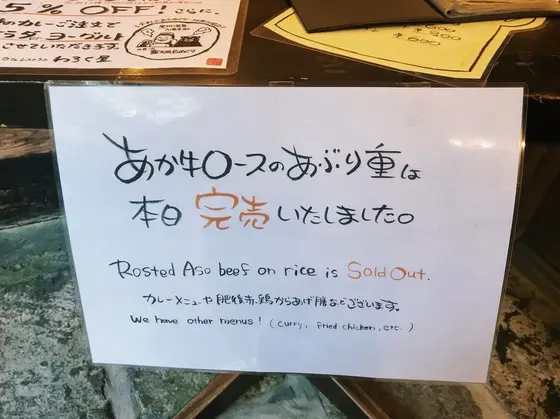 5% OFF! さらに
カレーご注文で
ヨーグルト
させていただきます。
わろく屋
あか牛ロースのあぶり重は
本日 完売いたしました。
Rosted Aso beef on rice is Sold Out.
カレーメニューや肥後赤鶏からあげ膳などございます。
We have other menus! (curry, fried chicken, etc.)